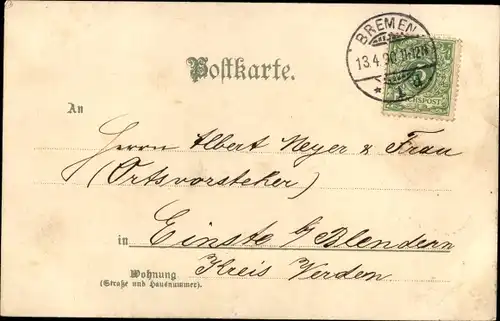 BREMEN
13.4.90. 11-12N
* 1 *
REICHSPOST
Postkarte.
An
Herrn Albert Meyer & Frau
(Ortsvorsteher)
in Einste b/ Blendern
Kreis Verden
Wohnung
(Straße und Hausnummer).